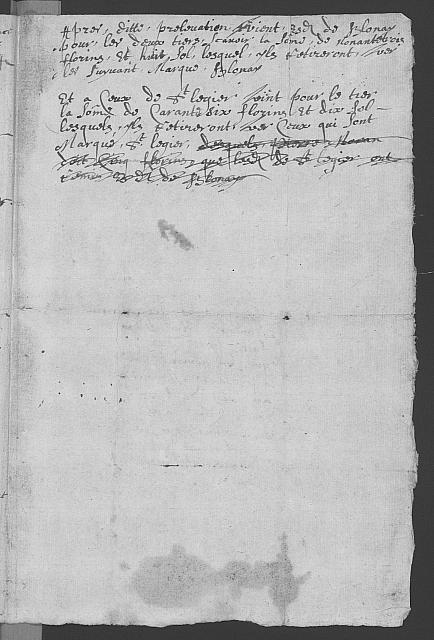 Apres ditte prelevation Vient, esd. de Blonay
pour les deux tiers, scavoir la sóme de nonante trois
florins, Et huit sol, lesquel, ils retireront, ver
les suyvant, Marque, Blonay
Et a Ceux de St legier, vint pour le tier
la sóme de Carante six florins, Et dix sol
lesquels, ils retireront, ver Ceux qui sont
Marque, St legier, desquels
florins que lesd. de St legier ont
esd. de Blonay